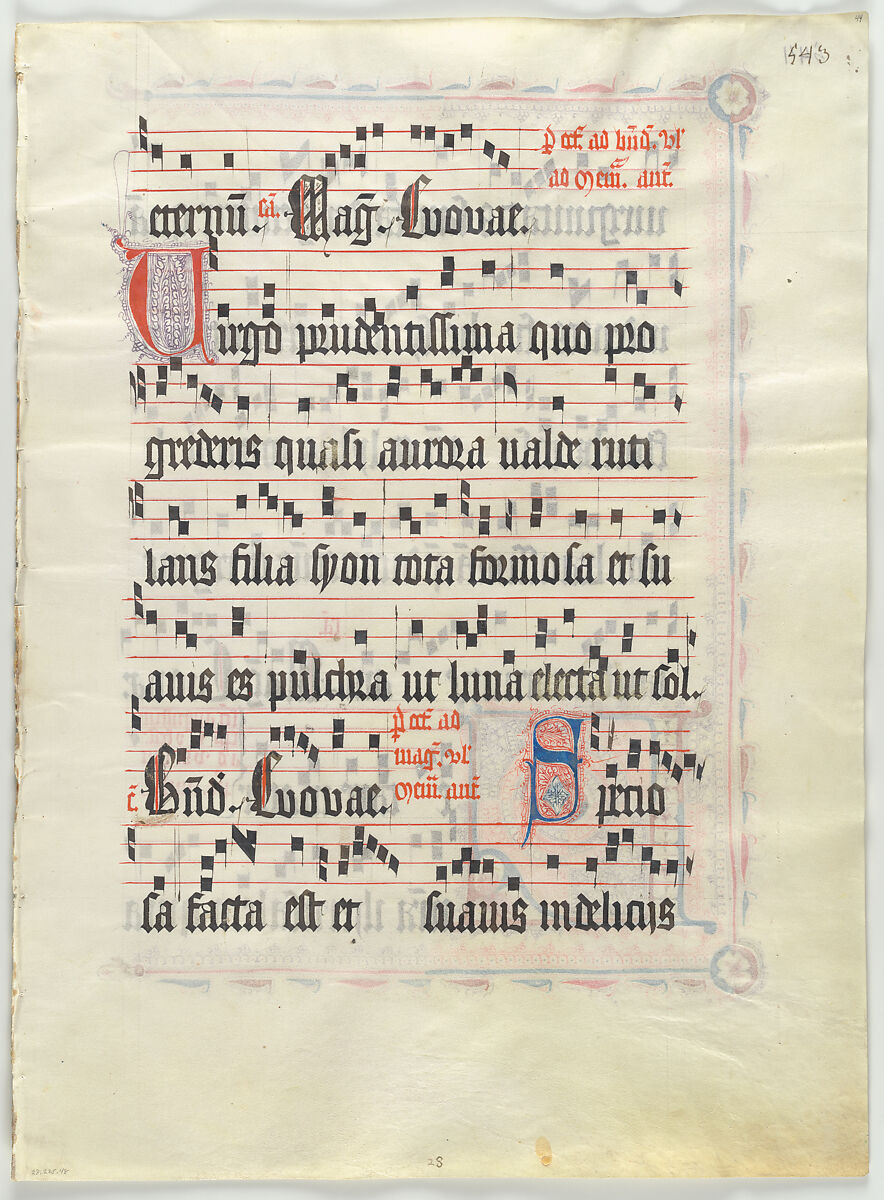 543
p̄ oct̄. ad bn̄d. vl'
ad mem̄. ant̄.
eternū cā. Mag̃. Euouae.
Uirgo prudentissima quo pro
grederis quasi aurora ualde ruti
lans filia syon tota formosa et su
auis es pulchra ut luna electa ut sol.
p̄ oct̄ ad
mag̃. vl'
mem̄. ant̄
c̄. Bn̄d. Euouae. Specio
sa facta est et suauis in delicijs
28